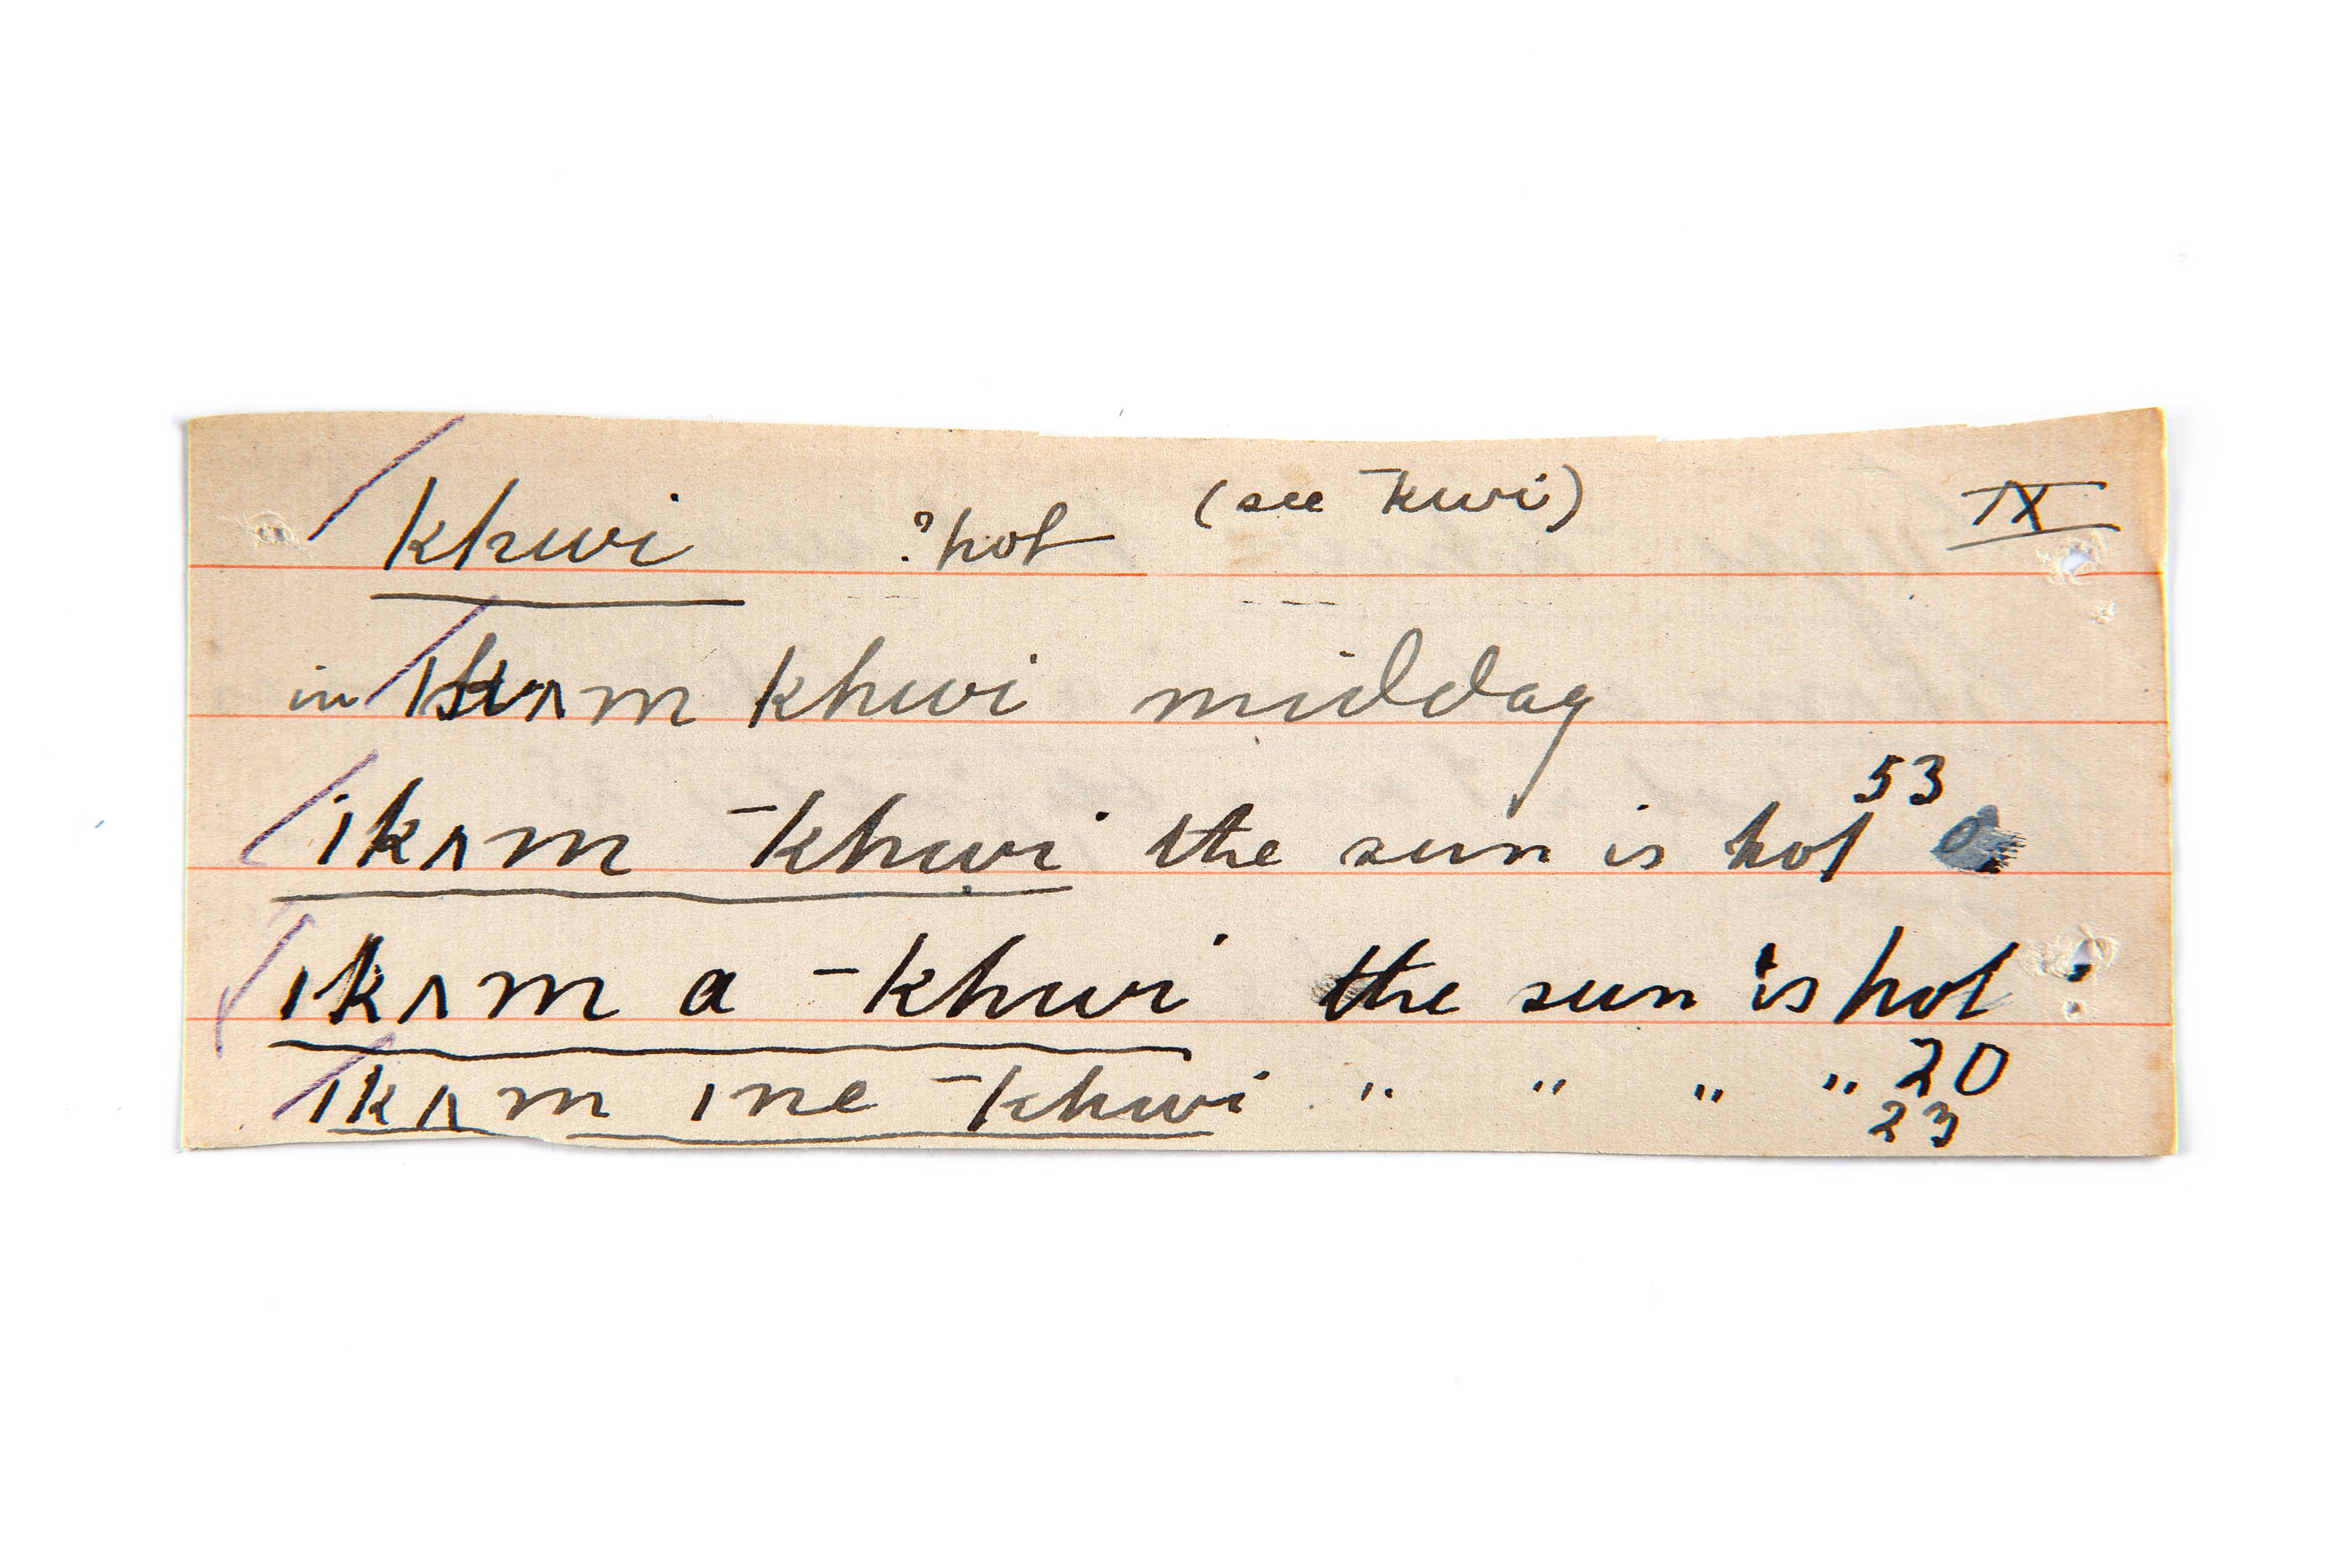 khwi ?hot (see ‾kwi) IX
in ǀkʌm khwi middag
ǀkʌm ‾khwi the sun is hot 53
ǀkʌm a ‾khwi the sun is hot
ǀkʌm ǀne ‾khwi " " " " 20
23